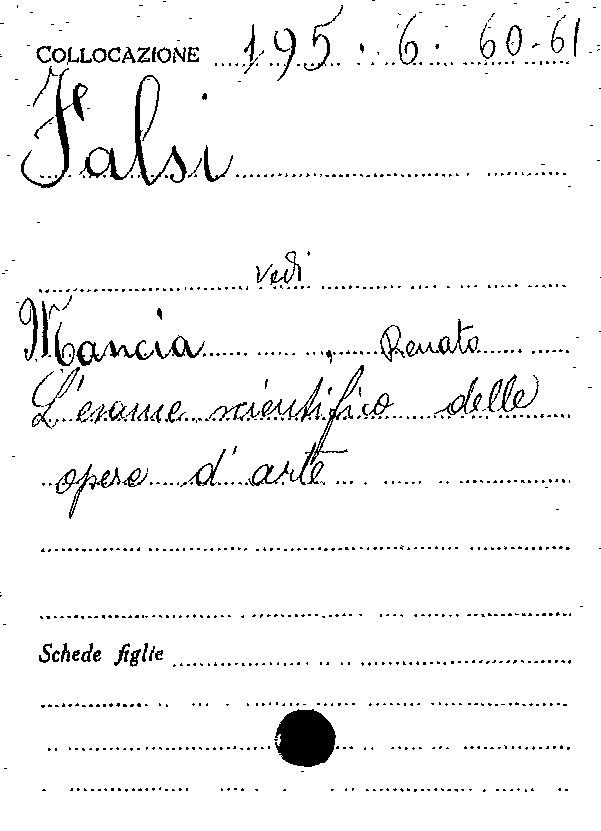 COLLOCAZIONE 195.6.60-61
Falsi
vedi
Mancia, Renato
L'esame scientifico delle
opere d'arte
Schede figlie